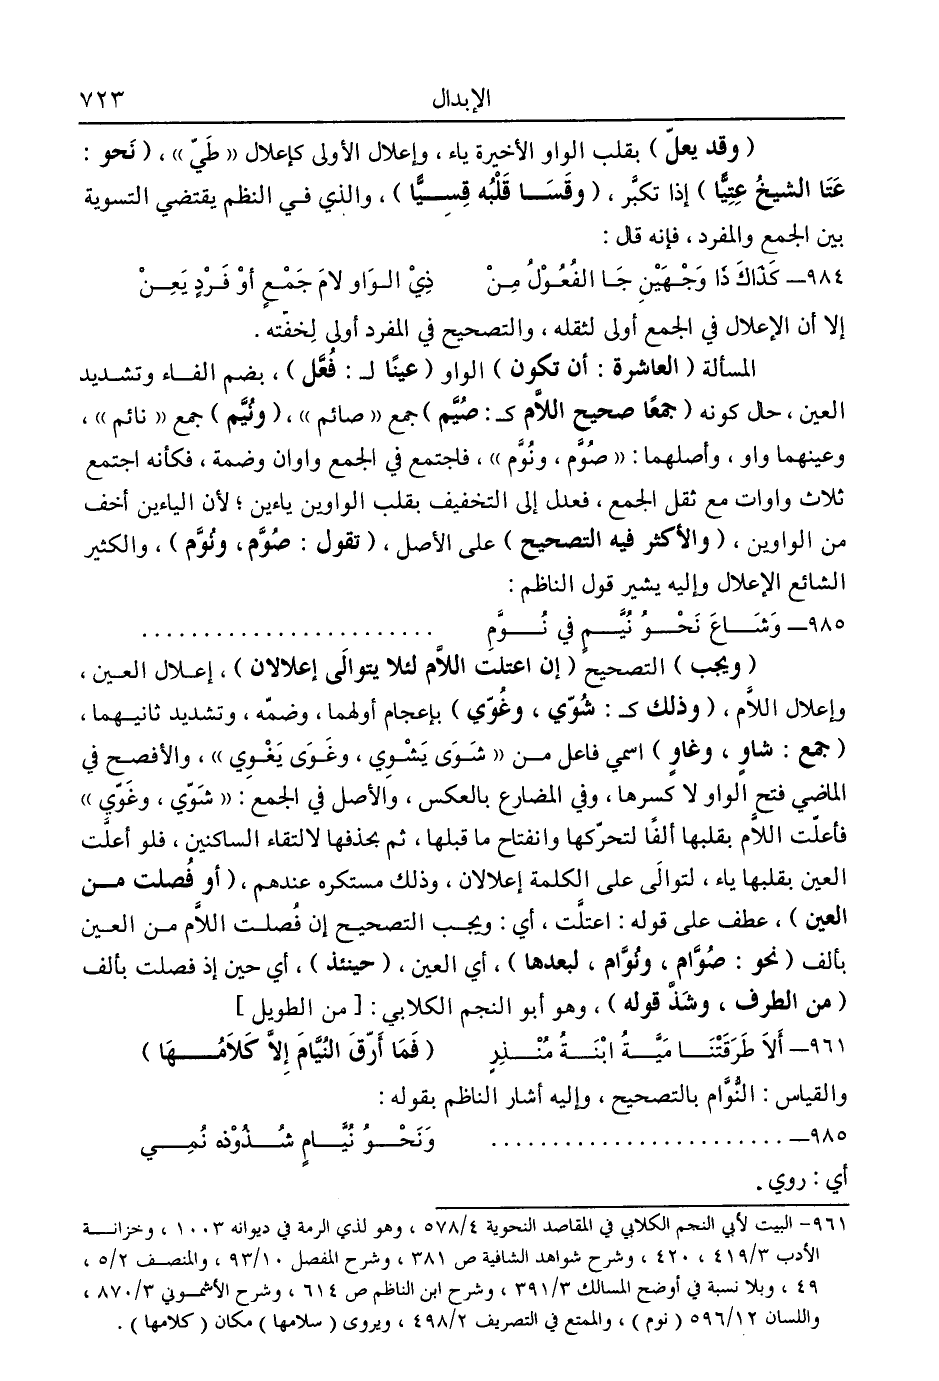 الإبدال ٧٢٣
( وقد يعلّ ) بقلب الواو الأخيرة ياء ، وإعلال الأولى كإعلال « طَيّ » ، ( نَحو :
عَتَا الشيخُ عِتِيًّا ) إذا تكبَّر ، ( وقَسَا قَلْبُه قِسِيًّا ) ، والذي في النظم يقتضي التسوية
بين الجمع والمفرد ، فإنه قال :
٩٨٤– كَذَاكَ ذَا وَجْهَيْنِ جَا الفُعُوْلُ مِنْ ذِيْ الوَاوِ لامَ جَمْعٍ أوْ فَرْدٍ يَعِنْ
إلا أن الإعلال في الجمع أولى لثقله ، والتصحيح في المفرد أولى لِخفّته .
المسألة ( العاشرة : أن تكون ) الواو ( عينًا لـ : فُعَّل ) ، بضم الفاء وتشديد
العين ، حال كونه ( جمعًا صحيح اللاَّم كـ : صُيَّم ) جمع « صائم » ، ( ونُيَّم ) جمع « نائم » ،
وعينهما واو ، وأصلهما : « صُوَّم ، ونُوَّم » ، فاجتمع في الجمع واوان وضمة ، فكأنه اجتمع
ثلاث واوات مع ثقل الجمع ، فعدل إلى التخفيف بقلب الواوين ياءين ؛ لأن الياءين أخف
من الواوين ، ( والأكثر فيه التصحيح ) على الأصل ، ( تقول : صُوَّم، ونُوَّم ) ، والكثير
الشائع الإعلال وإليه يشير قول الناظم :
٩٨٥– وَشَاعَ نَحْوُ نُيَّمٍ فِي نُوَّمِ ........................
( ويجب ) التصحيح ( إن اعتلت اللاَّم لئلا يتوالَى إعلالان ) ، إعلال العين ،
وإعلال اللاَّم ، ( وذلك كـ : شُوّي ، وغُوّي ) بإعجام أولهما ، وضمّه ، وتشديد ثانيهما ،
( جمع : شاوٍ ، وغاوٍ ) اسمي فاعل من « شَوَى يَشْوِي ، وغَوَى يَغْوِي » ، والأفصح في
الماضي فتح الواو لا كسرها ، وفي المضارع بالعكس ، والأصل في الجمع : « شَوَّي ، وغَوَّي »
فأعلّت اللاَّم بقلبها ألفًا لتحرّكها وانفتاح ما قبلها ، ثم بحذفها لالتقاء الساكنين ، فلو أعلَّت
العين بقلبها ياء ، لتوالَى على الكلمة إعلالان ، وذلك مستكره عندهم ، ( أو فُصلت من
العين ) ، عطف على قوله : اعتلَّت ، أي : ويجب التصحيح إن فُصلت اللاَّم من العين
بألف ( نحو : صُوَّام ، ونُوَّام ، لبعدها ) ، أي العين ، ( حينئذ ) ، أي حين إذ فصلت بألف
( من الطرف ، وشَذَّ قوله ) ، وهو أبو النجم الكلابي : [ من الطويل ]
٩٦١– أَلاَ طَرَقَتْنَا مَيَّةُ ابْنَةُ مُنْذِرٍ ( فَمَا أَرَّقَ النُيَّامَ إِلاَّ كَلاَمُهَا )
والقياس : النُّوَّام بالتصحيح ، وإليه أشار الناظم بقوله :
٩٨٥– ........................ وَنَحْوُ نُيَّامٍ شُذُوْذه نُمِي
أي : روي .
٩٦١- البيت لأبي النجم الكلابي في المقاصد النحوية ٥٧٨/٤ ، وهو لذي الرمة في ديوانه ١٠٠٣ ، وخزانة
الأدب ٤١٩/٣ ، ٤٢٠ ، وشرح شواهد الشافية ص ٣٨١ ، وشرح المفصل ٩٣/١٠ ، والمنصف ٥/٢ ،
٤٩ ، وبلا نسبة في أوضح المسالك ٣٩١/٣ ، وشرح ابن الناظم ص ٦١٤ ، وشرح الأشموني ٨٧٠/٣ ،
واللسان ٥٩٦/١٢ ( نوم ) ، والممتع في التصريف ٤٩٨/٢ ، ويروى ( سلامها ) مكان ( كلامها ) .